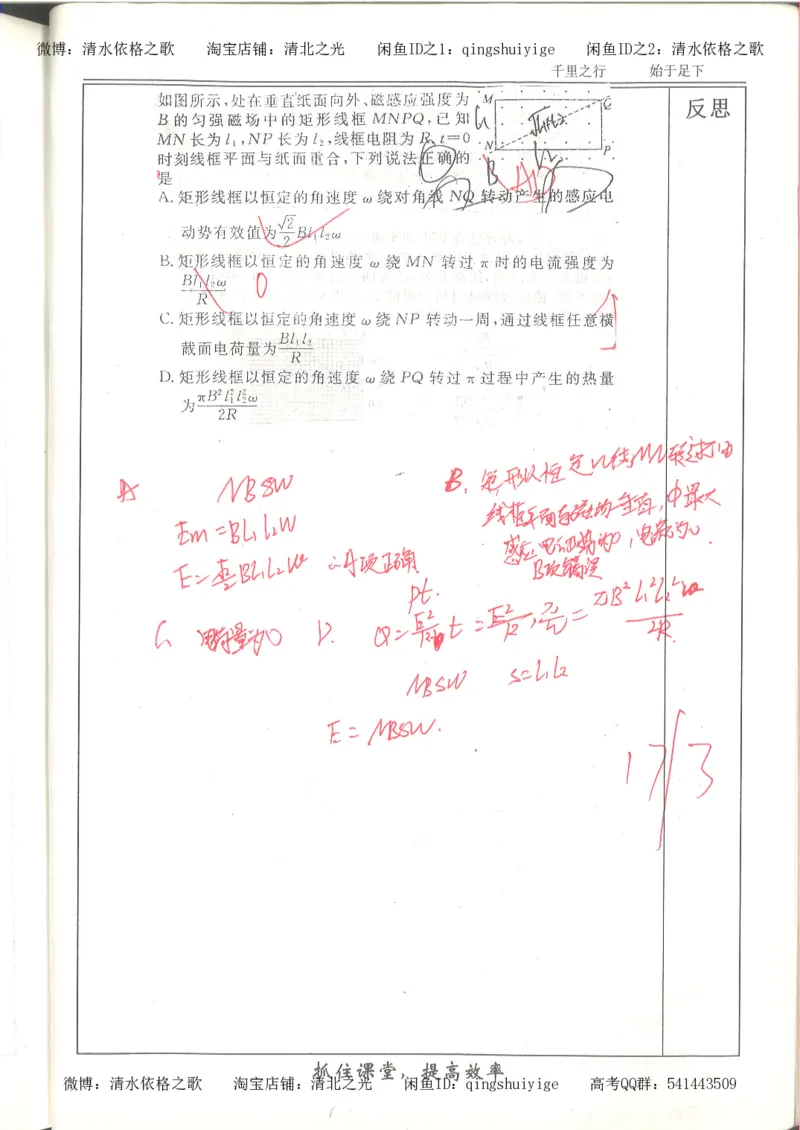 微博：清水依格之歌 淘宝店铺：清北之光 闲鱼ID之1：qingshuiyige 闲鱼ID之2：清水依格之歌
千里之行 始于足下
反思
如图所示,处在垂直纸面向外、磁感应强度为
B 的匀强磁场中的矩形线框 MNPQ,已知
MN 长为 l₁,NP 长为 l₂,线框电阻为 R。t=0
时刻线框平面与纸面重合,下列说法正确的
是
M Q
N P
l₁
l₂
B
AD
A. 矩形线框以恒定的角速度 ω 绕对角线 NQ 转动产生的感应电
动势有效值为 √2/2 Bl₁l₂ω
B. 矩形线框以恒定的角速度 ω 绕 MN 转过 π 时的电流强度为
Bl₁l₂ω/R 0
C. 矩形线框以恒定的角速度 ω 绕 NP 转动一周,通过线框任意横
截面电荷量为 Bl₁l₂/R
D. 矩形线框以恒定的角速度 ω 绕 PQ 转过 π 过程中产生的热量
为 πB²l₁²l₂²ω/2R
A NBSW
Em=BL₁L₂W
E=√2/2 BL₁L₂W ∴A项正确
B. 矩形以恒定W绕MN转过π时
线框平面与磁场垂直,中最大
感应电动势为0,电流为0.
B项错误
C 电荷量为0
D. Q=E²/R t=E²/R·π/W=πB²L₁²L₂²W/2R
pt.
NBSW S=L₁L₂
E=NBSW.
17/3
抓住课堂，提高效率
微博：清水依格之歌 淘宝店铺：清北之光 闲鱼ID：qingshuiyige 高考QQ群：541443509